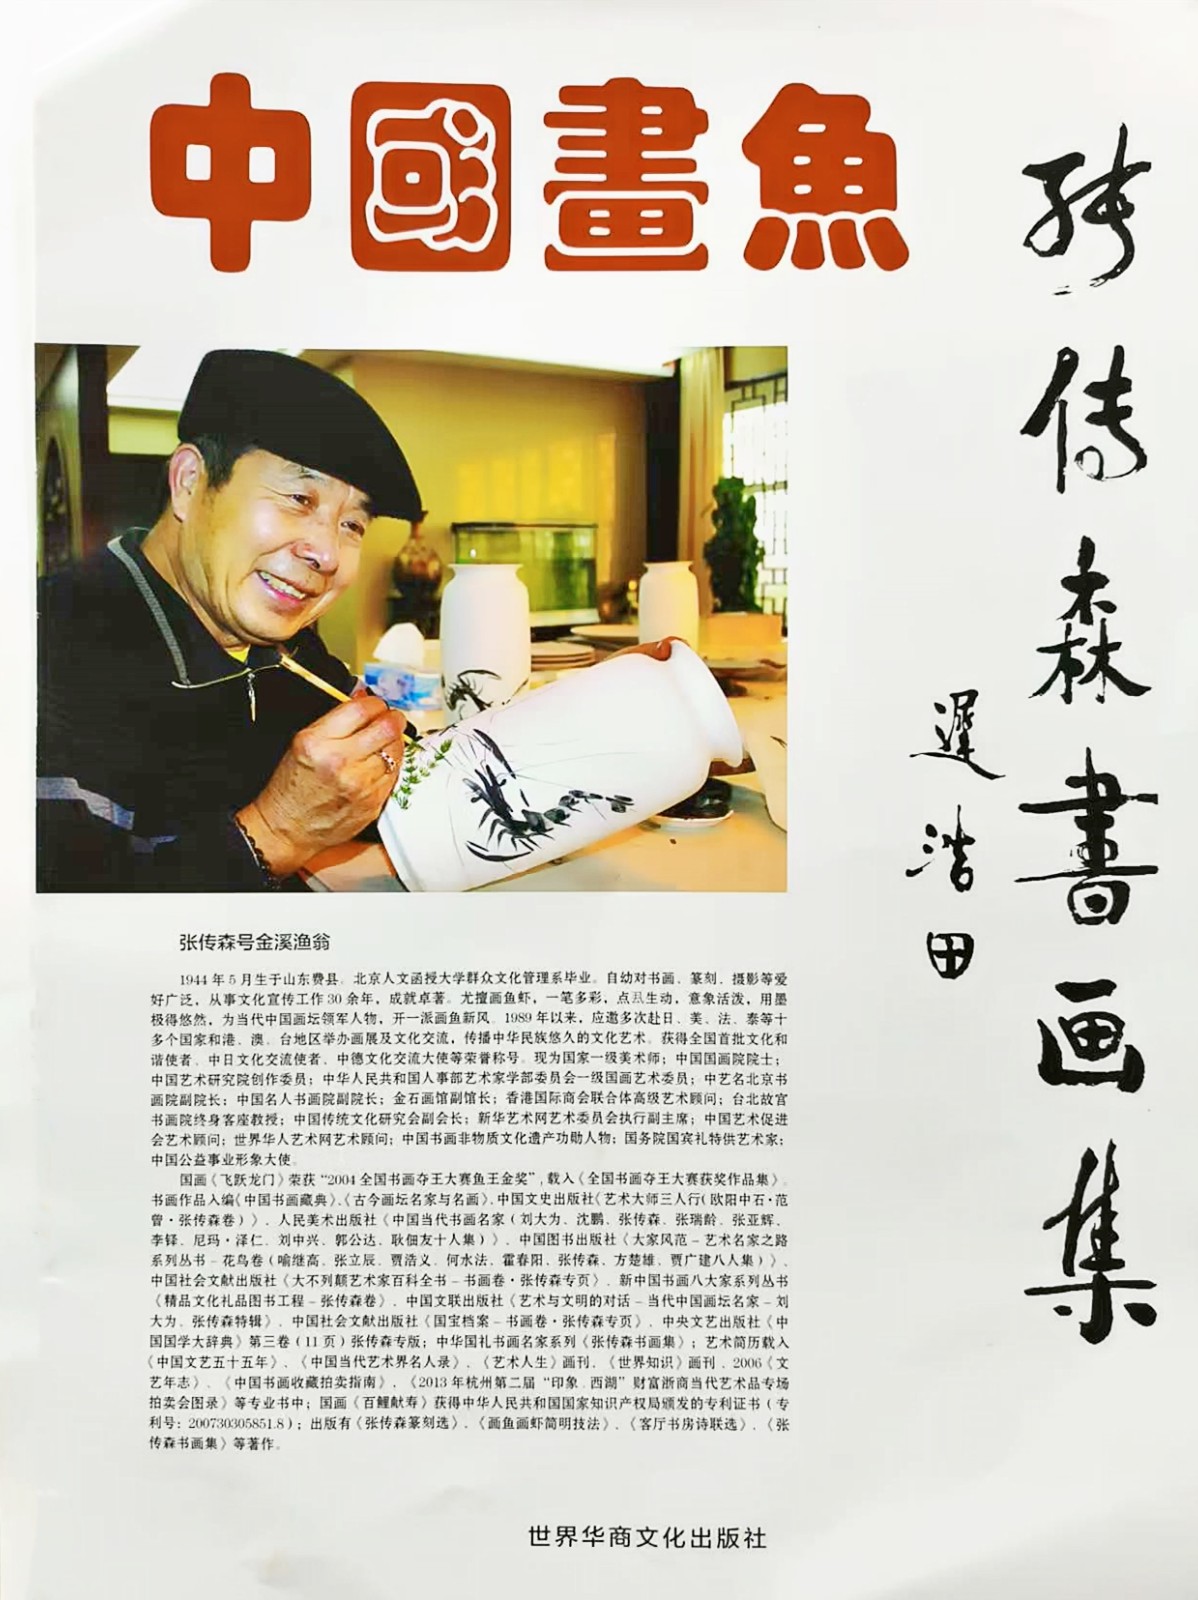 中國畫魚
张传森書画集
遲浩田
张传森号金溪渔翁
1944年5月生于山东费县。北京人文函授大学群众文化管理系毕业。自幼对书画、篆刻、摄影等爱
好广泛，从事文化宣传工作30余年，成就卓著。尤擅画鱼虾，一笔多彩，点厾生动，意象活泼，用墨
极得悠然，为当代中国画坛领军人物，开一派画鱼新风。1989年以来，应邀多次赴日、美、法、泰等十
多个国家和港、澳、台地区举办画展及文化交流，传播中华民族悠久的文化艺术。获得全国首批文化和
谐使者、中日文化交流使者、中德文化交流大使等荣誉称号。现为国家一级美术师；中国国画院院士；
中国艺术研究院创作委员；中华人民共和国人事部艺术家学部委员会一级国画艺术委员；中艺名北京书
画院副院长；中国名人书画院副院长；金石画馆副馆长；香港国际商会联合体高级艺术顾问；台北故宫
书画院终身客座教授；中国传统文化研究会副会长；新华艺术网艺术委员会执行副主席；中国艺术促进
会艺术顾问；世界华人艺术网艺术顾问；中国书画非物质文化遗产功勋人物；国务院国宾礼特供艺术家；
中国公益事业形象大使。
国画《飞跃龙门》荣获“2004全国书画夺王大赛鱼王金奖”，载入《全国书画夺王大赛获奖作品集》。
书画作品入编《中国书画藏典》、《古今画坛名家与名画》、中国文史出版社《艺术大师三人行（欧阳中石·范
曾·张传森卷）》、人民美术出版社《中国当代书画名家（刘大为、沈鹏、张传森、张瑞龄、张亚辉、
李铎、尼玛·泽仁、刘中兴、郭公达、耿佃友十人集）》、中国图书出版社《大家风范－艺术名家之路
系列丛书－花鸟卷（喻继高、张立辰、贾浩义、何水法、霍春阳、张传森、方楚雄、贾广建八人集）》、
中国社会文献出版社《大不列颠艺术家百科全书－书画卷·张传森专页》、新中国书画八大家系列丛书
《精品文化礼品图书工程－张传森卷》、中国文联出版社《艺术与文明的对话－当代中国画坛名家－刘
大为、张传森特辑》、中国社会文献出版社《国宝档案－书画卷·张传森专页》、中央文艺出版社《中
国国学大辞典》第三卷（11页）张传森专版；中华国礼书画名家系列《张传森书画集》；艺术简历载入
《中国文艺五十五年》、《中国当代艺术界名人录》、《艺术人生》画刊、《世界知识》画刊、2006《文
艺年志》、《中国书画收藏拍卖指南》、《2013年杭州第二届“印象．西湖”财富浙商当代艺术品专场
拍卖会图录》等专业书中；国画《百鲤献寿》获得中华人民共和国国家知识产权局颁发的专利证书（专
利号：200730305851.8）；出版有《张传森篆刻选》、《画鱼画虾简明技法》、《客厅书房诗联选》、《张
传森书画集》等著作。
世界华商文化出版社